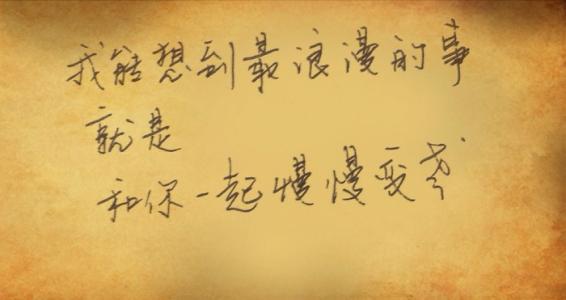 我能想到最浪漫的事
就是
和你一起慢慢变老